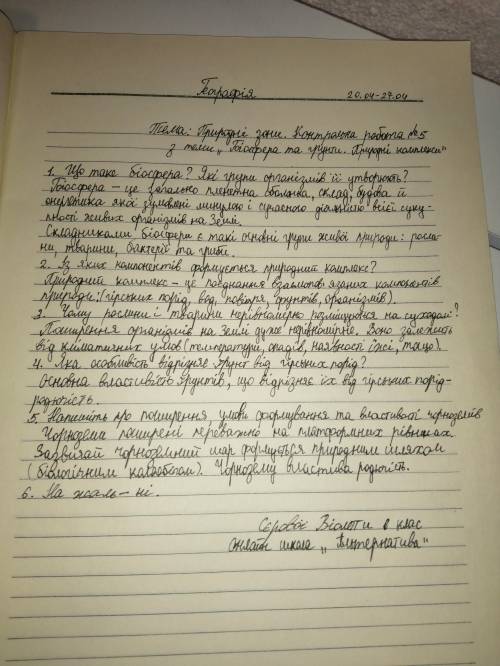 Географія 20.04-27.04
Тема: Природні зони. Контрольна робота №5
з теми „Біосфера та ґрунти. Природні комплекси"
1. Що таке біосфера? Які групи організмів її утворюють?
Біосфера - це загально планетна оболонка, склад, будова й
енергетика якої зумовлені минулою і сучасною діяльністю всієї суку-
пності живих організмів на Землі.
Складниками біосфери є такі основні групи живої природи: росли-
ни, тварини, бактерії та гриби.
2. Із яких компонентів формується природний комплекс?
Природний комплекс - це поєднання взаємопов'язаних компонентів
природи: (гірських порід, вод, повітря, ґрунтів, організмів).
3. Чому рослини і тварини нерівномірно розміщуються на суходолі?
Поширення організмів на Землі дуже нерівномірне. Воно залежить
від кліматичних умов (температури, опадів, наявності їжі, тощо).
4. Яка особливість відрізняє ґрунт від гірських порід?
Основна властивість ґрунтів, що відрізняє їх від гірських порід-
родючість.
5. Напишіть про поширення умови формування та властивості чорноземів
Чорноземи поширені переважно на платформних рівнинах.
Зазвичай чорноземний шар формується природним шляхом
(біологічним). Чорнозему властива родючість.
6. На жаль - ні.
Сєрової Віолети 6 клас
онлайн школа „Альтернатива"